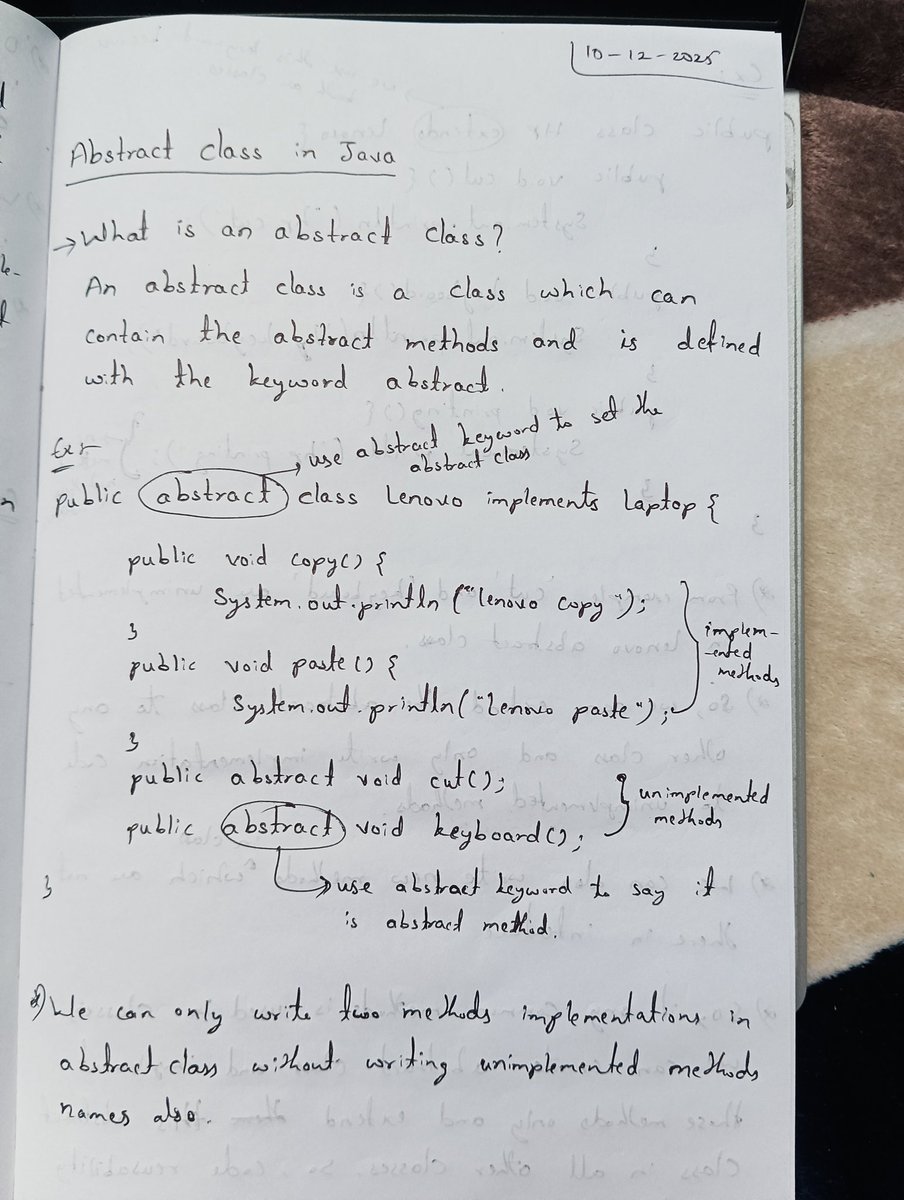 10-12-2025
Abstract class in Java
→ What is an abstract class?
An abstract class is a class which can
contain the abstract methods and is defined
with the keyword abstract.
Ex:-
→ use abstract keyword to set the
abstract class
public abstract class Lenovo implements Laptop {
public void copy() {
System.out.println("lenovo copy");
}
public void paste() {
System.out.println("Lenovo paste");
}
implem-
-ented
methods
public abstract void cut();
public abstract void keyboard();
unimplemented
methods
}
→ use abstract keyword to say it
is abstract method.
*) We can only write two methods implementations in
abstract class without writing unimplemented methods
names also.